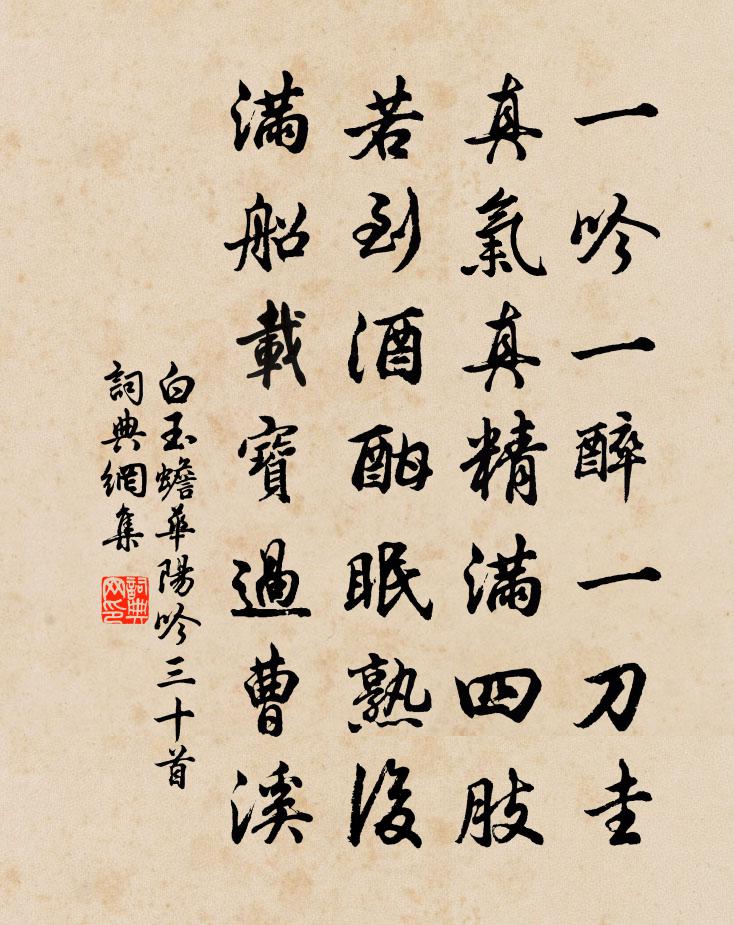 一吟一醉一刀圭
真氣真精滿四肢
若到酒酣眠熟後
滿船載寶過曹溪
白玉蟾華陽吟三十首
詞典網集
詞典網印